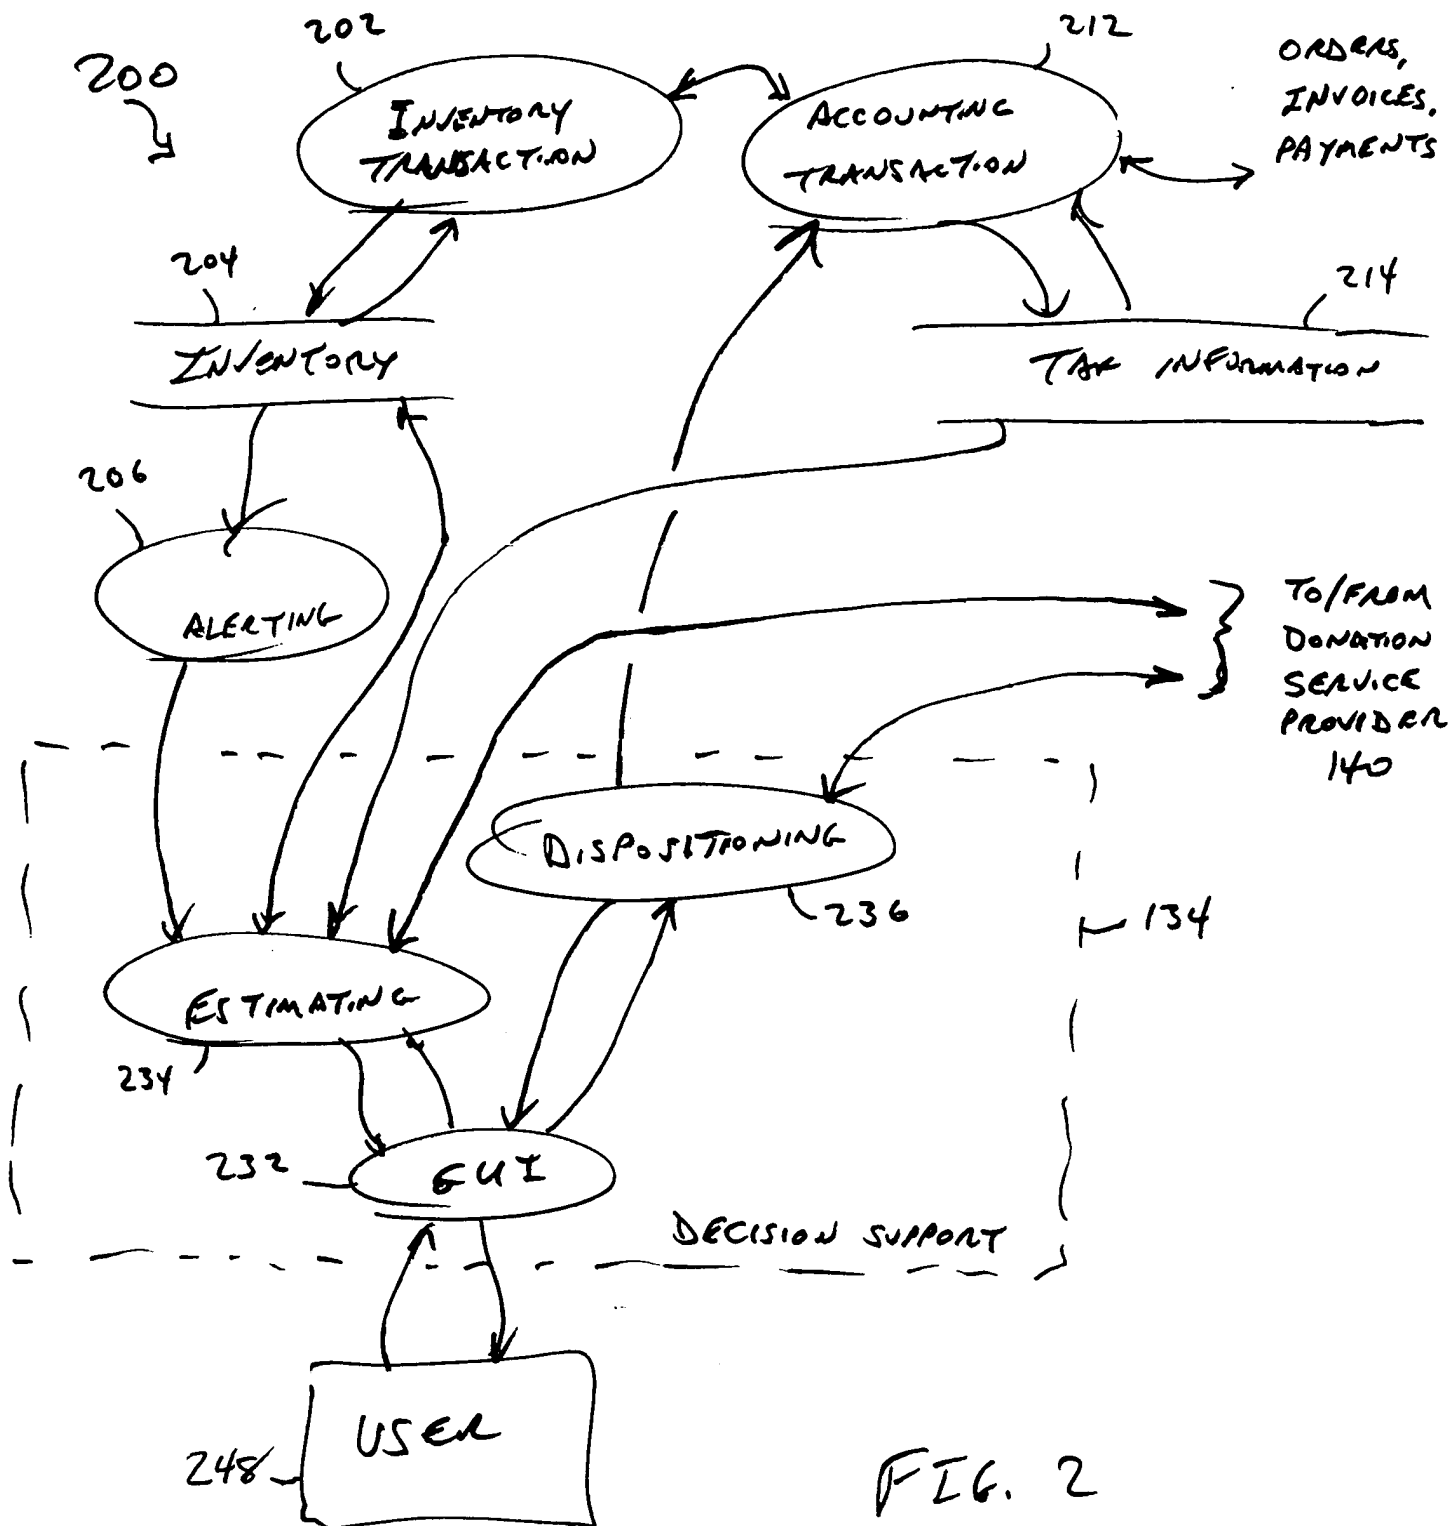 200
202
INVENTORY
TRANSACTION
212
ACCOUNTING
TRANSACTION
ORDERS,
INVOICES,
PAYMENTS
204
INVENTORY
214
TAX INFORMATION
206
ALERTING
TO/FROM
DONATION
SERVICE
PROVIDER
140
DISPOSITIONING
236
134
ESTIMATING
234
232
GUI
DECISION SUPPORT
USER
248
FIG. 2